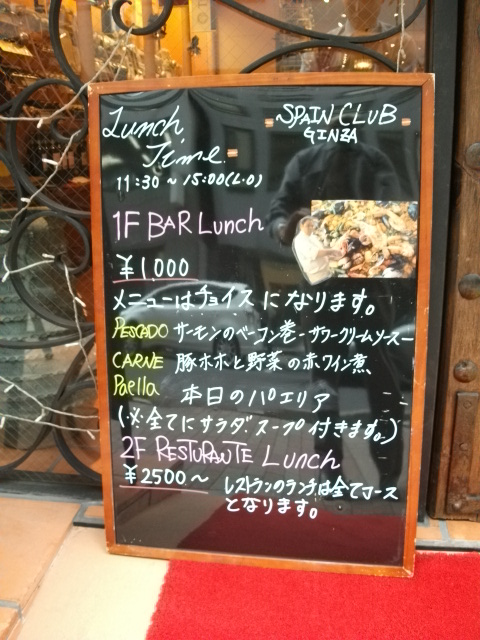 Lunch Time
SPAIN CLUB
GINZA
11:30~15:00(L.O)
1F BAR Lunch
¥1000
メニューはチョイスになります。
PESCADO サーモンのベーコン巻-サワークリームソース-
CARNE 豚ホホと野菜の赤ワイン煮
Paella 本日のパエリア
(※全てにサラダ.スープ付きます。)
2F RESTURANTE Lunch
¥2500～ レストランのランチは全てコース
となります。